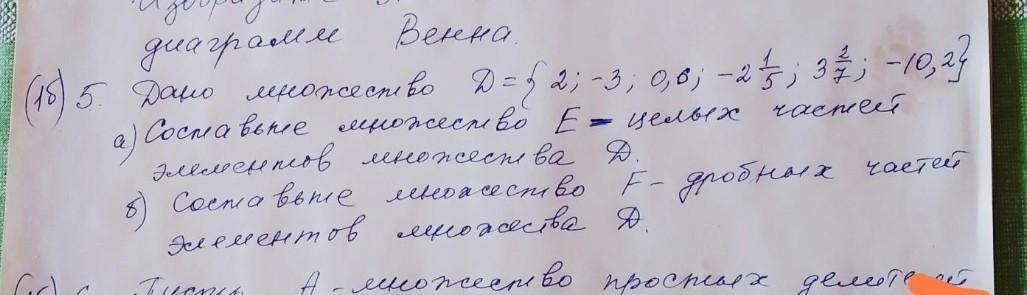 Изобразите
диаграмм Венна.
(1б) 5. Дано множество D = { 2; -3; 0,6; -2 1/5; 3 2/7; -10,2}
а) Составьте множество E - целых частей
элементов множества D.
б) Составьте множество F - дробных частей
элементов множества D.
Пусть A - множество простых делителей